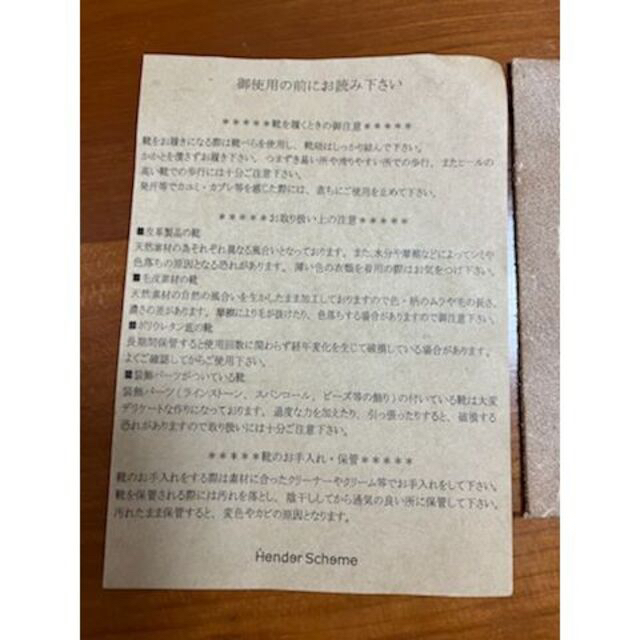 御使用の前にお読み下さい
*****靴を履くときの御注意*****
靴をお履きになる際は靴べらを使用し、靴紐はしっかり結んで下さい。
かかとを潰さずお履き下さい。つまずき易い所や滑りやすい所での歩行、またヒールの
高い靴での歩行には十分ご注意下さい。
発汗等でカユミ・カブレ等を感じた際には、直ちにご使用を止めて下さい。
*****お取り扱い上の注意*****
■皮革製品の靴
天然素材の為それぞれ異なる風合いとなっております。また、水分や摩擦などによってシミや
色落ちの原因となる恐れがあります。薄い色の衣類を着用の際はお気をつけ下さい。
■毛皮素材の靴
天然素材の自然の風合いを生かしたまま加工しておりますので色・柄のムラや毛の長さ、
濃さの差があります。摩擦により毛が抜けたり、色落ちする場合がありますので御注意下さい。
■ポリウレタン底の靴
長期間保管すると使用回数に関わらず経年変化を生じて破損している場合があります。
よくご確認してからご使用下さい。
■装飾パーツがついている靴
装飾パーツ(ラインストーン、スパンコール、ビーズ等の飾り)の付いている靴は大変
デリケートな作りになっております。過度な力を加えたり、引っ張ったりすると、破損する
恐れがありますので取り扱いには十分ご注意下さい。
*****靴のお手入れ・保管*****
靴のお手入れをする際は素材に合ったクリーナーやクリーム等でお手入れをして下さい。
靴を保管される際には汚れを落とし、陰干ししてから通気の良い所に保管して下さい。
汚れたまま保管すると、変色やカビの原因となります。
Hender Scheme